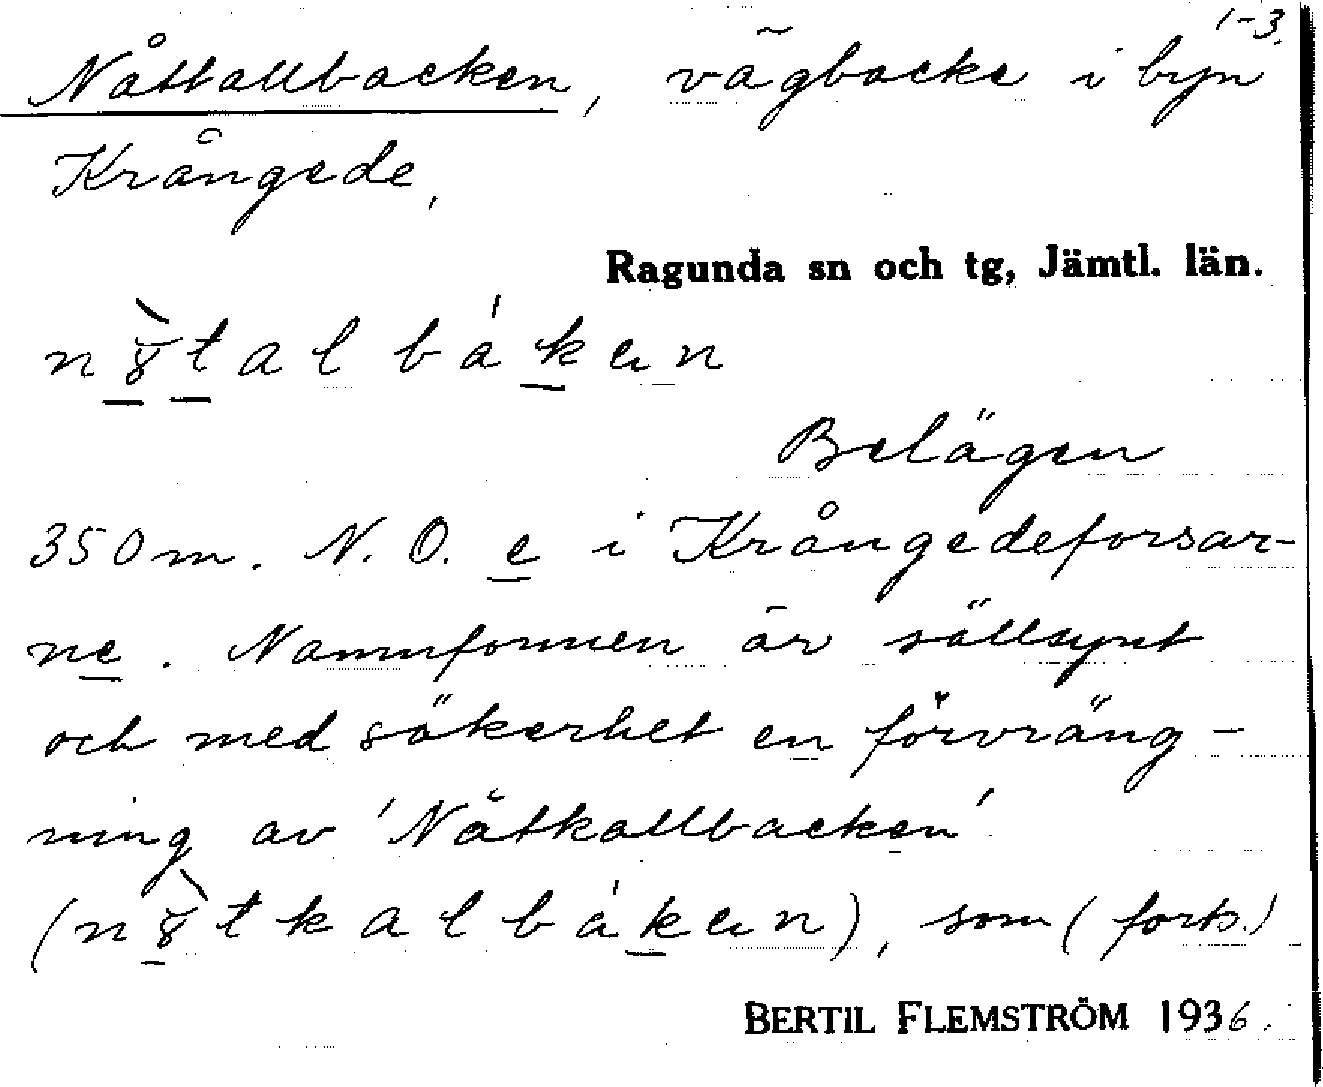 1-3.
Nåttallbacken, vägbacke i byn
Krångede,
Ragunda sn och tg, Jämtl. län.
Belägen
350 m. N. O. e i Krångedeforsar-
ne. Namnformen är sällsynt
och med säkerhet en förvräng-
ning av 'Nåtkallbacken'
som (forts.)
BERTIL FLEMSTRÖM 1936.